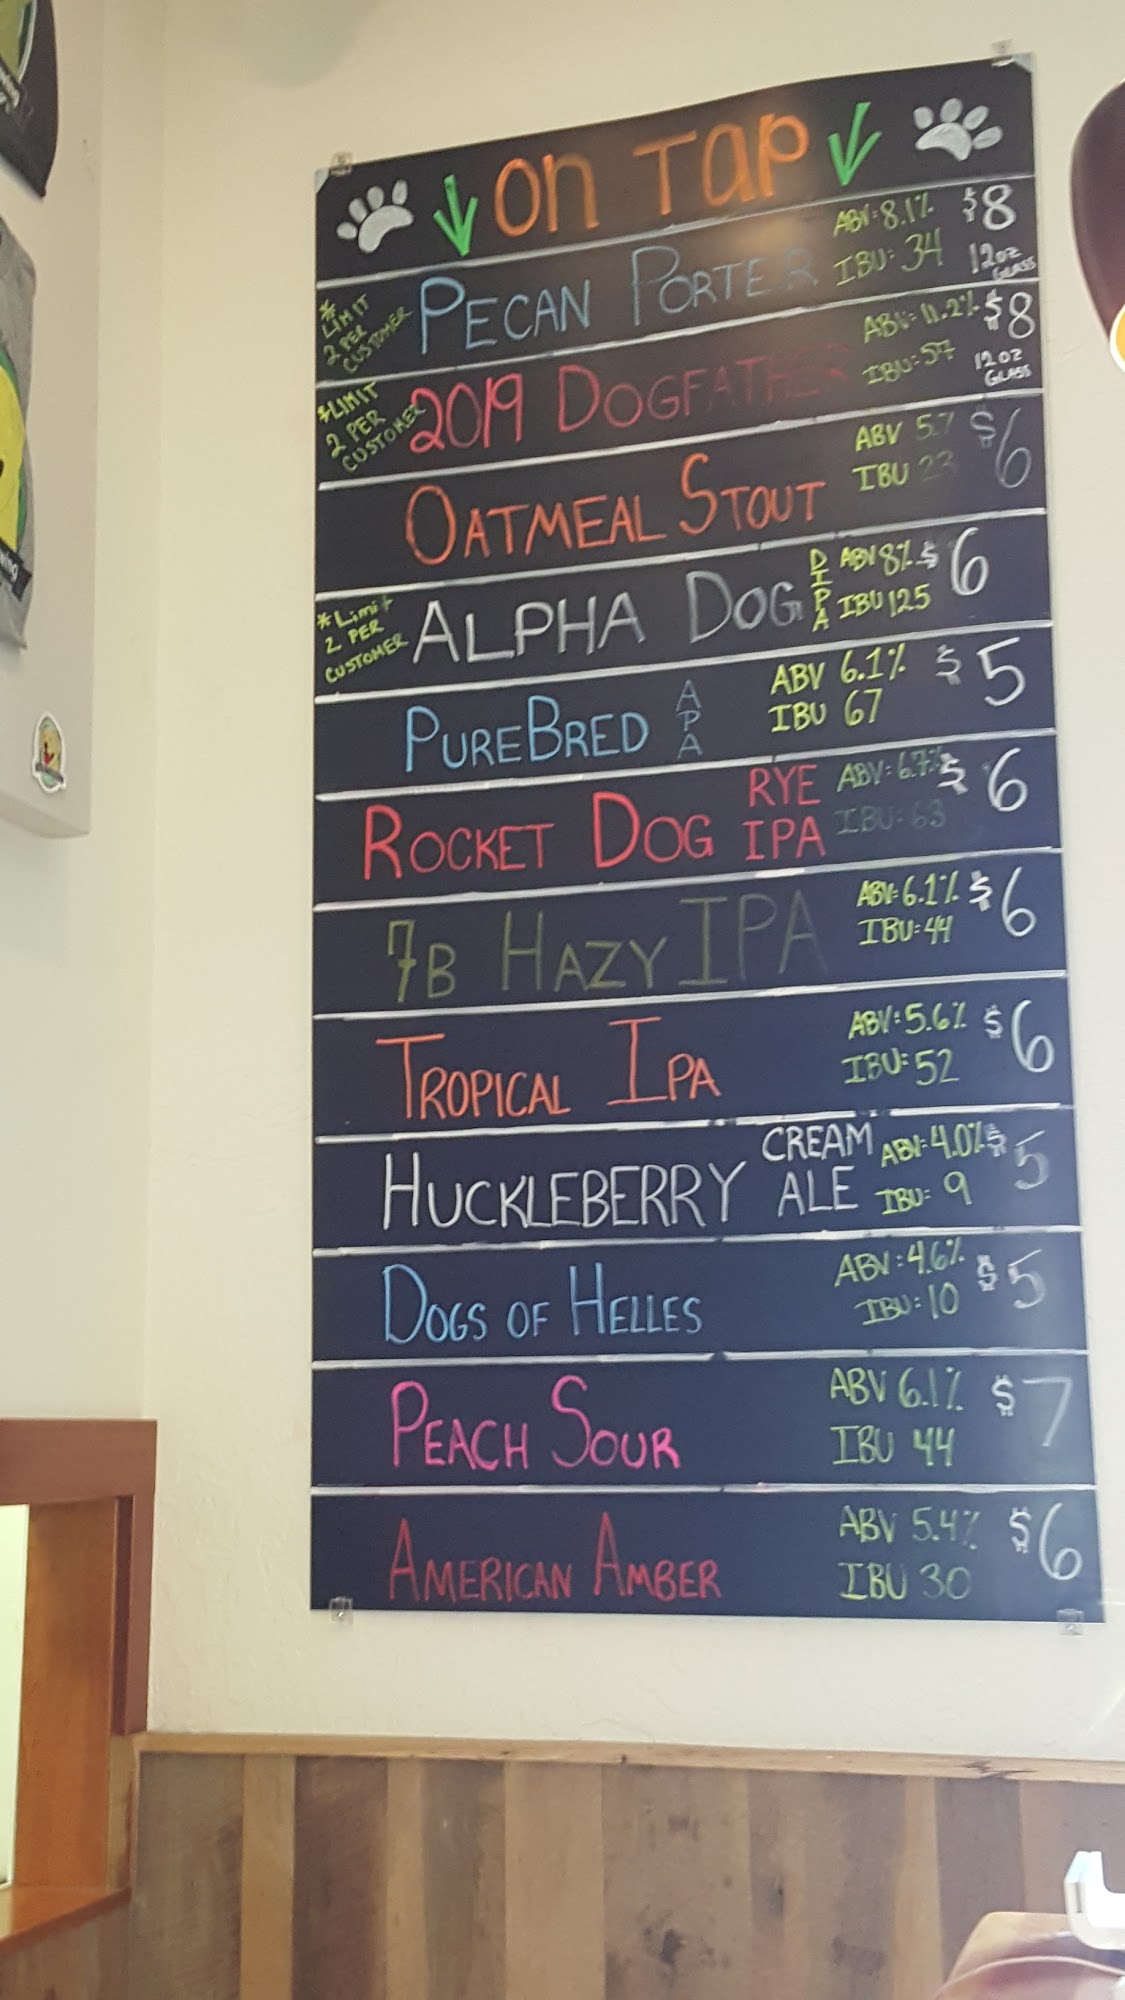 ON TAP
* LIMIT 2 PER CUSTOMER
PECAN PORTER
ABV: 8.1%
IBU: 34
$8
12oz GLASS
*LIMIT 2 PER CUSTOMER
2019 DOGFATHER
ABV: 11.2%
IBU: 57
$8
12oz GLASS
OATMEAL STOUT
ABV 5.7
IBU 23
$6
*Limit 2 PER CUSTOMER
ALPHA DOG DIPA
ABV 8%
IBU 125
$6
PUREBRED APA
ABV 6.1%
IBU 67
$5
ROCKET DOG RYE IPA
ABV: 6.7%
IBU: 63
$6
7B HAZY IPA
ABV: 6.1%
IBU: 44
$6
TROPICAL IPA
ABV: 5.6%
IBU: 52
$6
HUCKLEBERRY CREAM ALE
ABV: 4.0%
IBU: 9
$5
DOGS OF HELLES
ABV: 4.6%
IBU: 10
$5
PEACH SOUR
ABV 6.1%
IBU 44
$7
AMERICAN AMBER
ABV 5.4%
IBU 30
$6